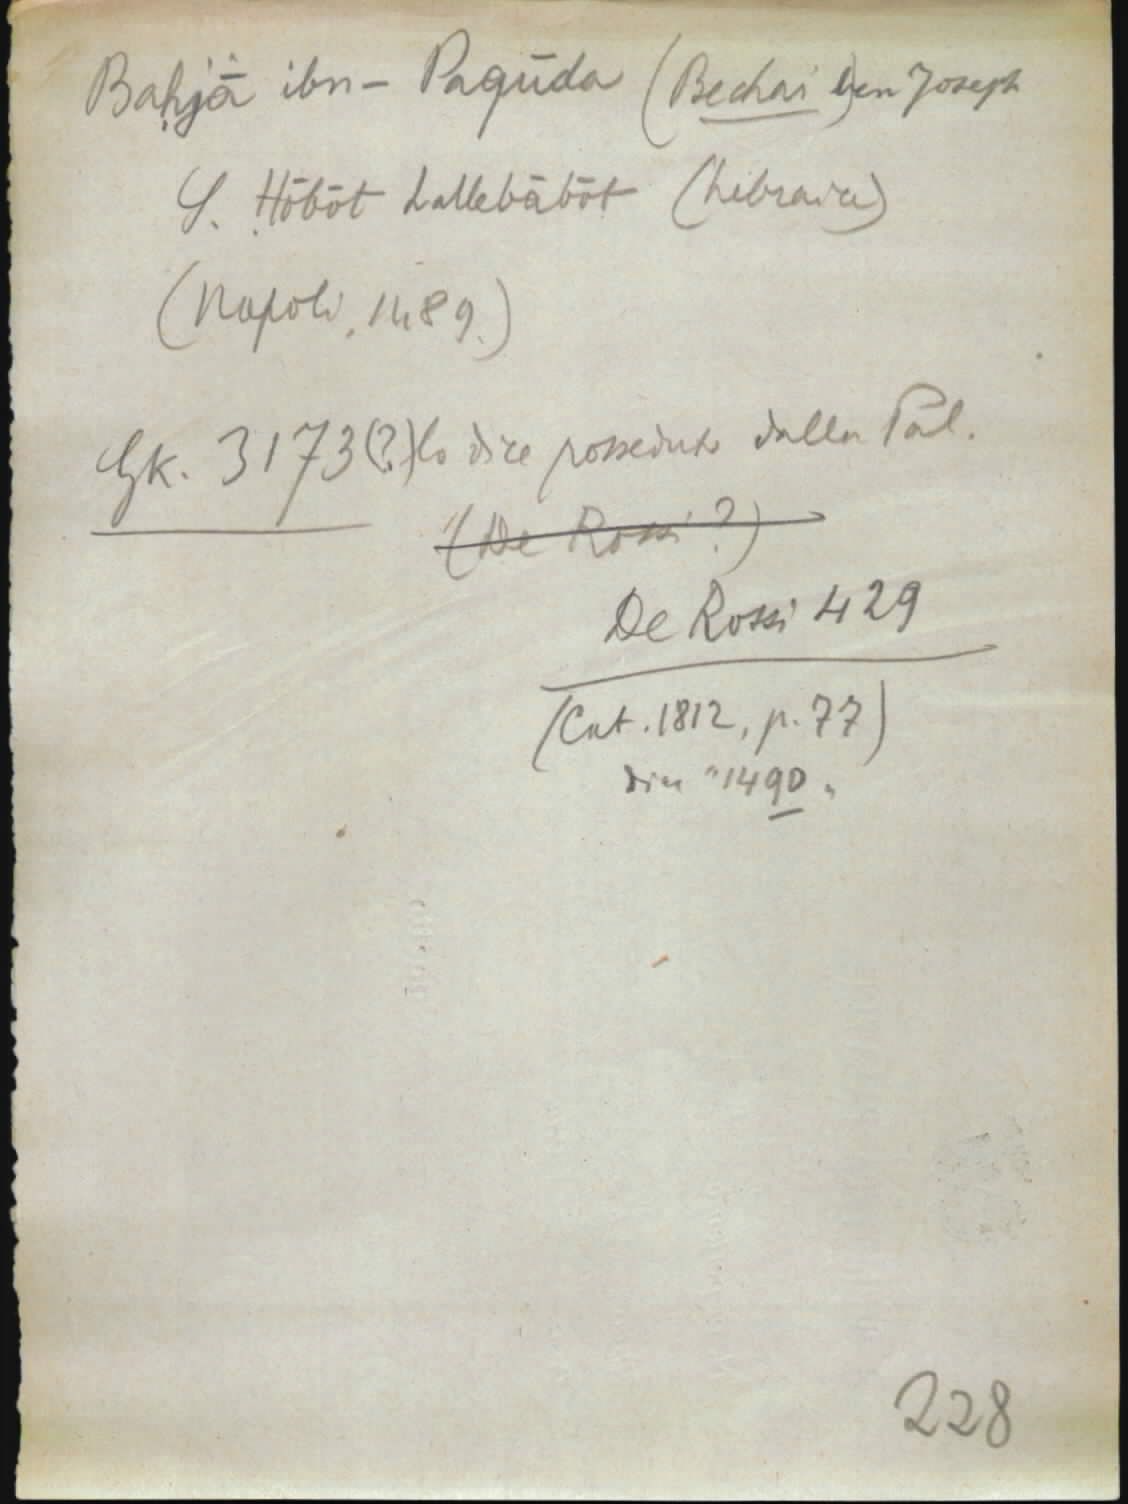 Baḥjā ibn-Paqūda (Bechai) ben Joseph
S. Ḥōbōt hallebābōt (hebraice)
(Napoli, 1489.)
Gk. 3173(?) lo dice posseduto dalla Pal.
(De Rossi?)
De Rossi 429
(Cat. 1812, p. 77)
"1490"
228